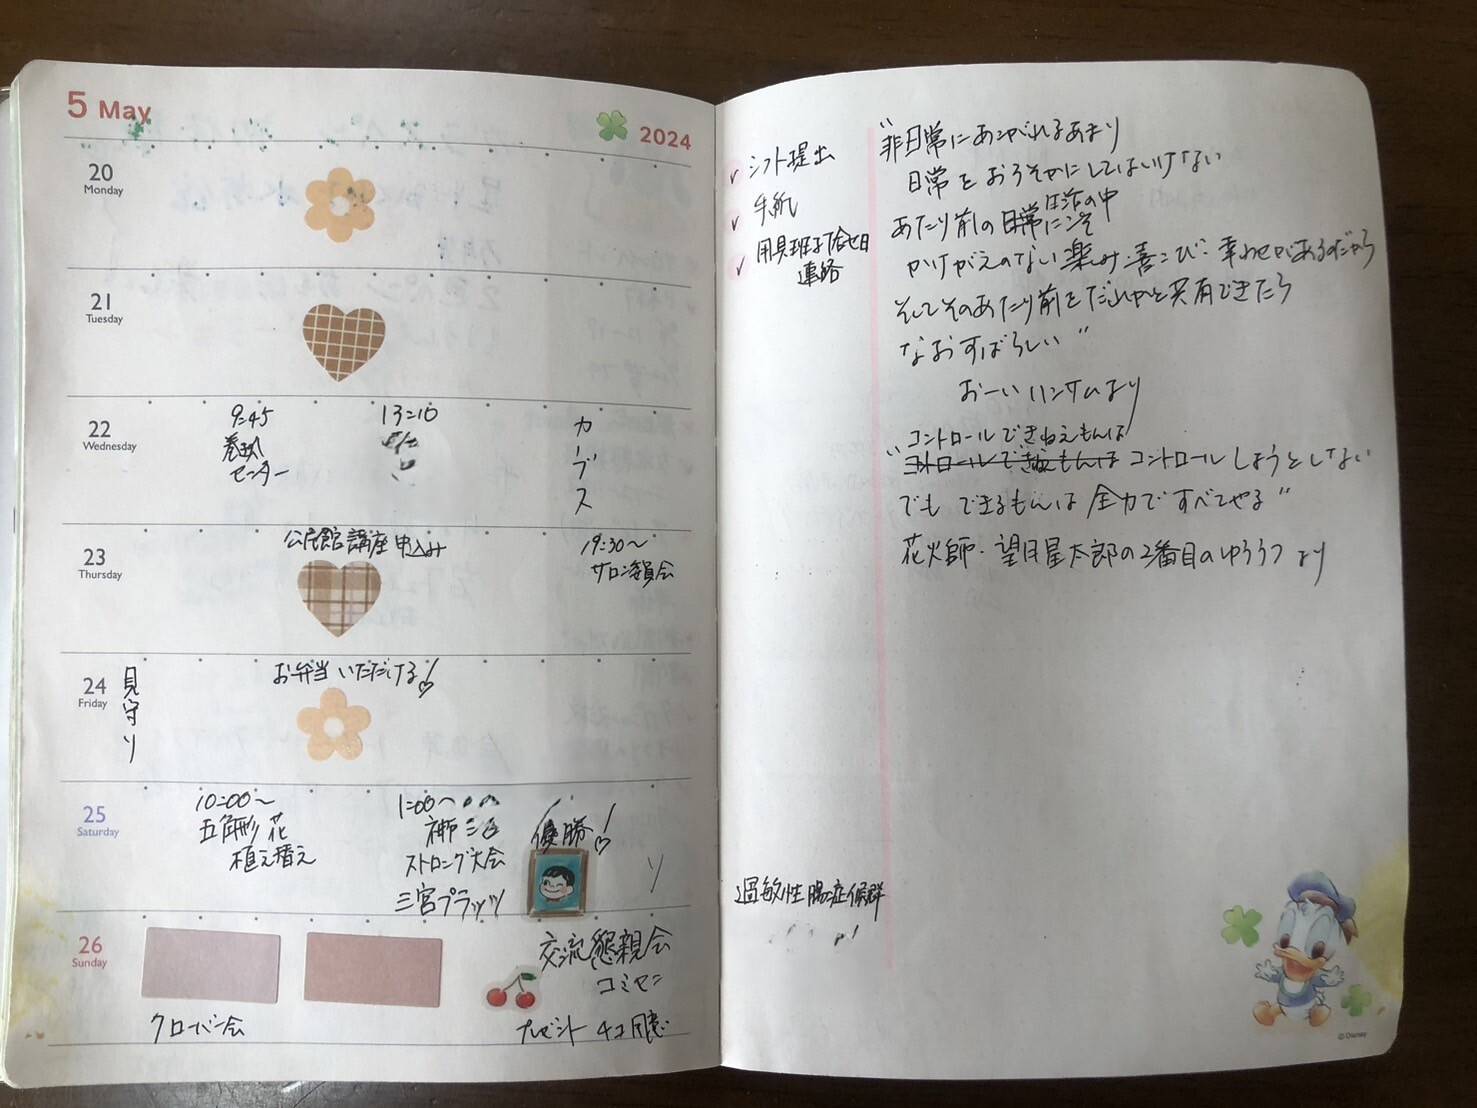 5 May
2024
20
Monday
21
Tuesday
22
Wednesday
9:45
センター
13:10
カーブス
23
Thursday
公民館講座申込み
19:30〜
サロン委員会
24
Friday
見守り
お弁当いただける!
25
Saturday
10:00〜
五角形 花
植え替え
1:00〜
ストロング大会
三宮プラッツ
優勝!
り
26
Sunday
クローバー会
交流懇親会
コミセン
プレゼント チョコ用意
✓ シフト提出
✓ 手紙
✓ 用具班打合せ日
連絡
過敏性腸症候群
"非日常にあこがれるあまり
日常をおろそかにしてはいけない
あたり前の日常生活の中にこそ
かけがえのない楽しみ・喜こび・幸わせがあるのだから
そしてそのあたり前をだれかと共有できたら
なおすばらしい"
おーいハンサムより
コントロールできねえもんは
"コントロールできねえもんはコントロールしようとしない
でも できるもんは 全力で すべてやる"
花火師・望月星太郎の2番目のゆううつ より
© Disney